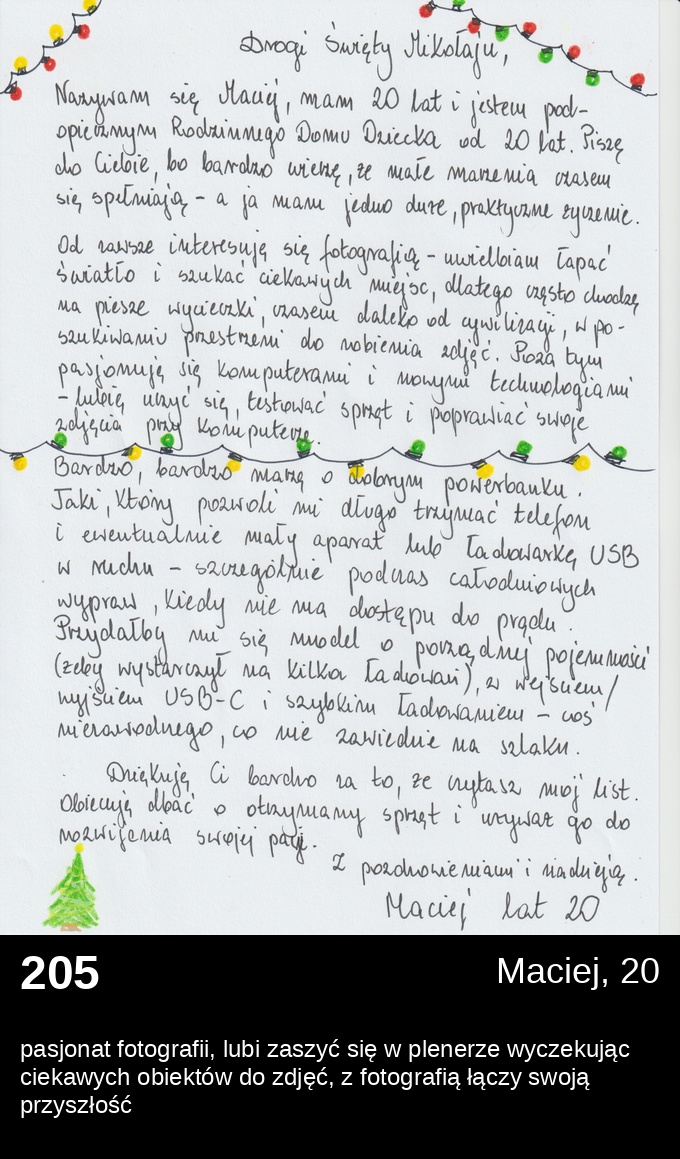 Drogi Święty Mikołaju,
Nazywam się Maciej, mam 20 lat i jestem pod-
opiecznym Rodzinnego Domu Dziecka od 20 lat. Piszę
do Ciebie, bo bardzo wierzę, że małe marzenia czasem
się spełniają – a ja mam jedno duże, praktyczne życzenie.
Od zawsze interesują się fotografią – uwielbiam łapać
światło i szukać ciekawych miejsc, dlatego często chodzę
na piesze wycieczki, czasem daleko od cywilizacji, w po-
szukiwaniu przestrzeni do robienia zdjęć. Poza tym
pasjonują się komputerami i nowymi technologiami
– lubię uczyć się, testować sprzęt i poprawiać swoje
zdjęcia przy komputerze.
Bardzo, bardzo marzę o dobrym powerbanku.
Taki, który pozwoli mi długo trzymać telefon
i ewentualnie mały aparat lub ładowarkę USB
w ruchu – szczególnie podczas całodniowych
wypraw, kiedy nie ma dostępu do prądu.
Przydałby mi się model o porządnej pojemności
(żeby wystarczył na kilka ładowań), z wejściem/
wyjściem USB-C i szybkim ładowaniem – coś
niezawodnego, co nie zawiedzie na szlaku.
Dziękuję Ci bardzo za to, że czytasz mój list.
Obiecuję dbać o otrzymany sprzęt i używać go do
rozwijania swojej pasji.
Z pozdrowieniami i nadzieją.
Maciej lat 20
205
Maciej, 20
pasjonat fotografii, lubi zaszyć się w plenerze wyczekując
ciekawych obiektów do zdjęć, z fotografią łączy swoją
przyszłość